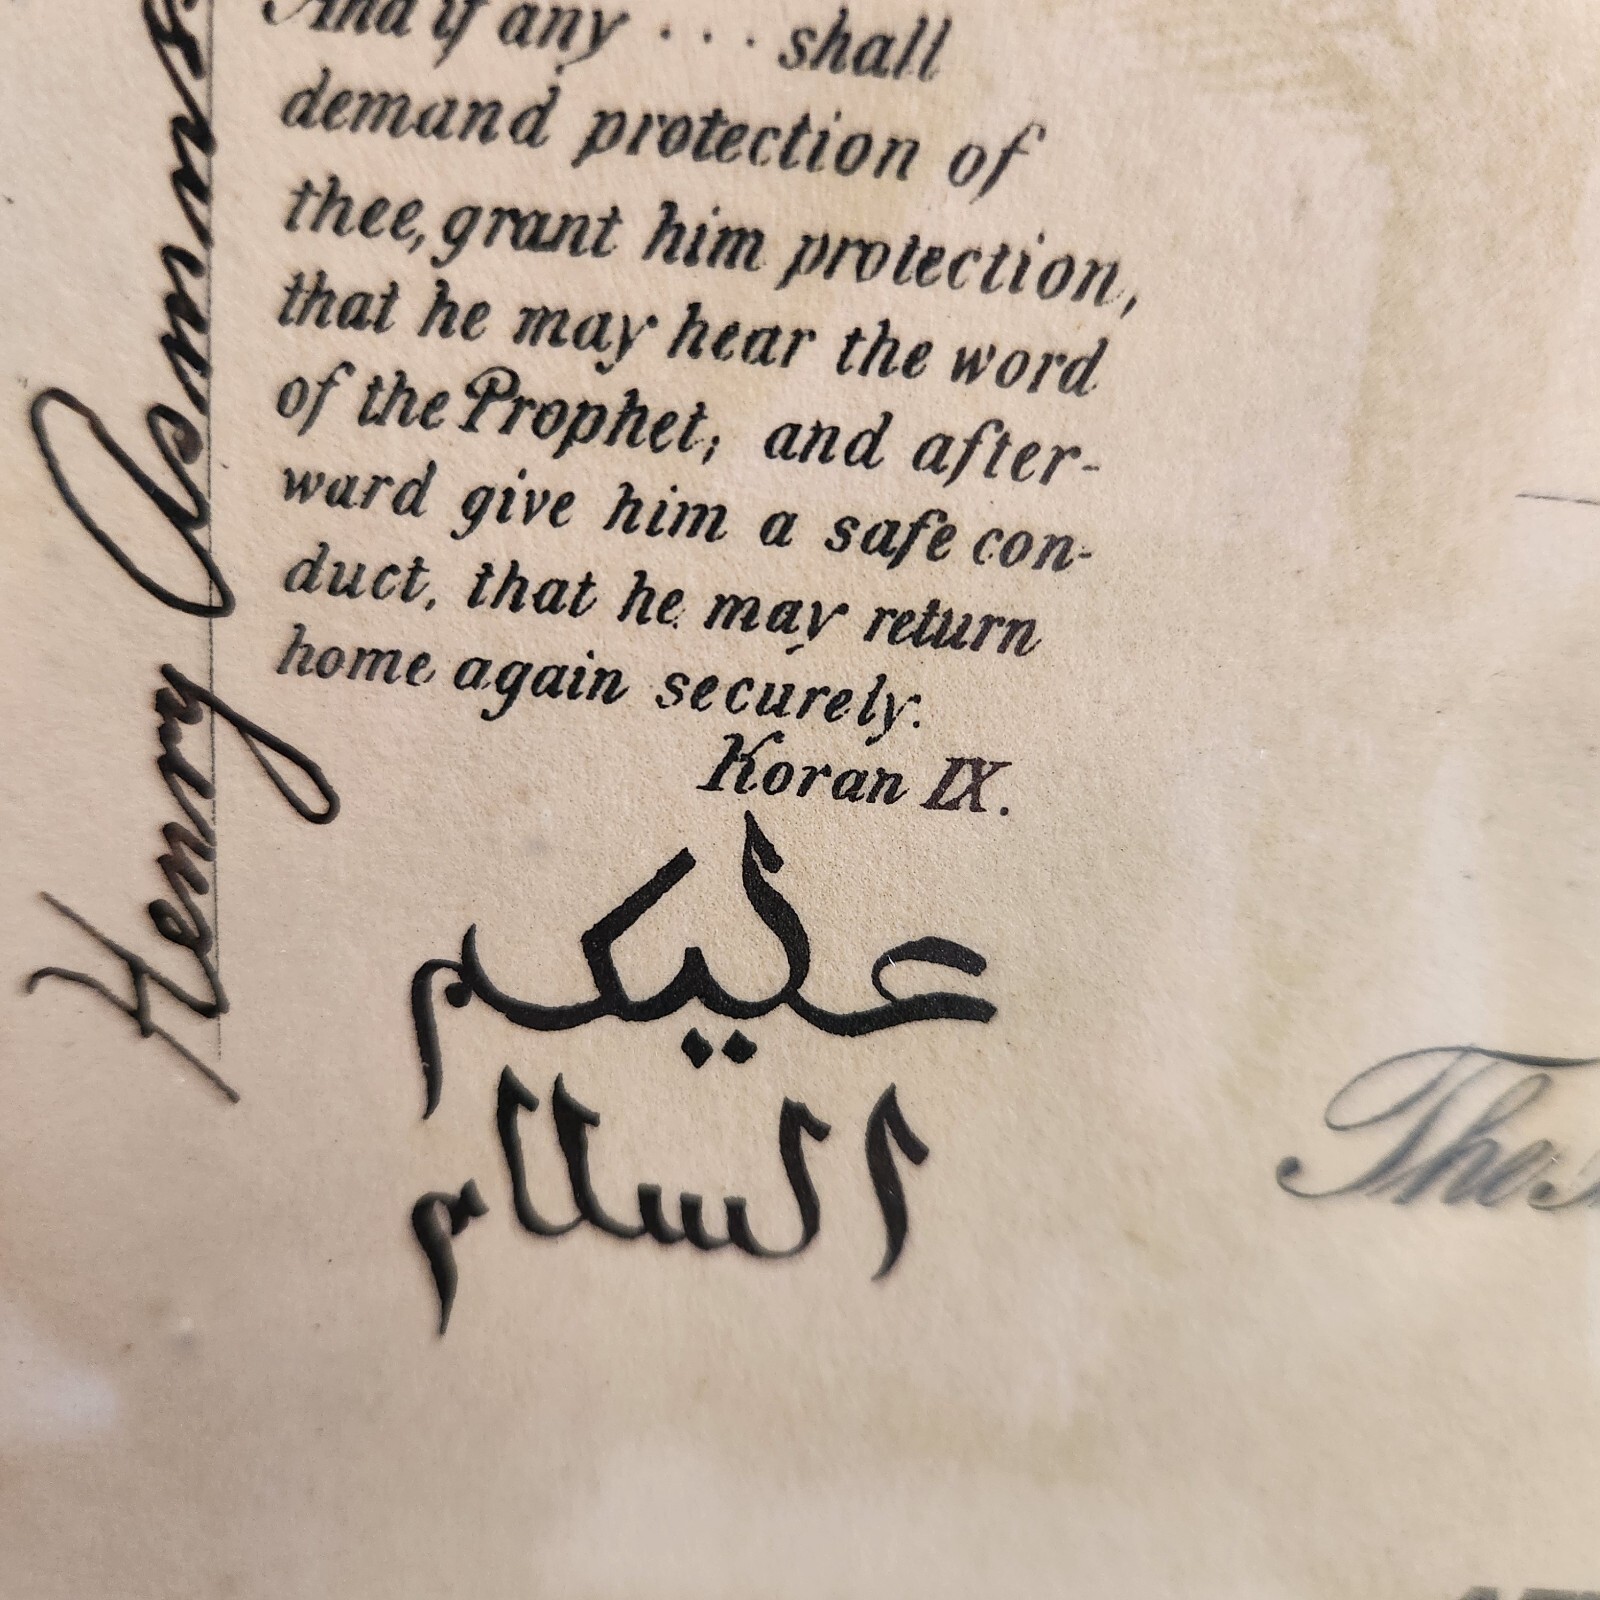 And if any ... shall
demand protection of
thee, grant him protection,
that he may hear the word
of the Prophet, and after-
ward give him a safe con-
duct, that he may return
home again securely.
Koran IX.
عليكم
السلام
Henry
The